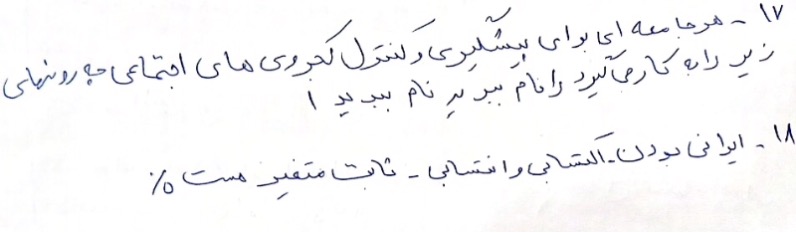 ۱۷ - هر جامعه ای برای پیشگیری و کنترل کجروی های اجتماعی چه روشهای
زیر را به کار می‌گیرد را نام ببرید نام ببرید ۱
۱۸ - ایرانی بودن - اکتسابی و انتسابی - ثابت متغیر هست ۵٪